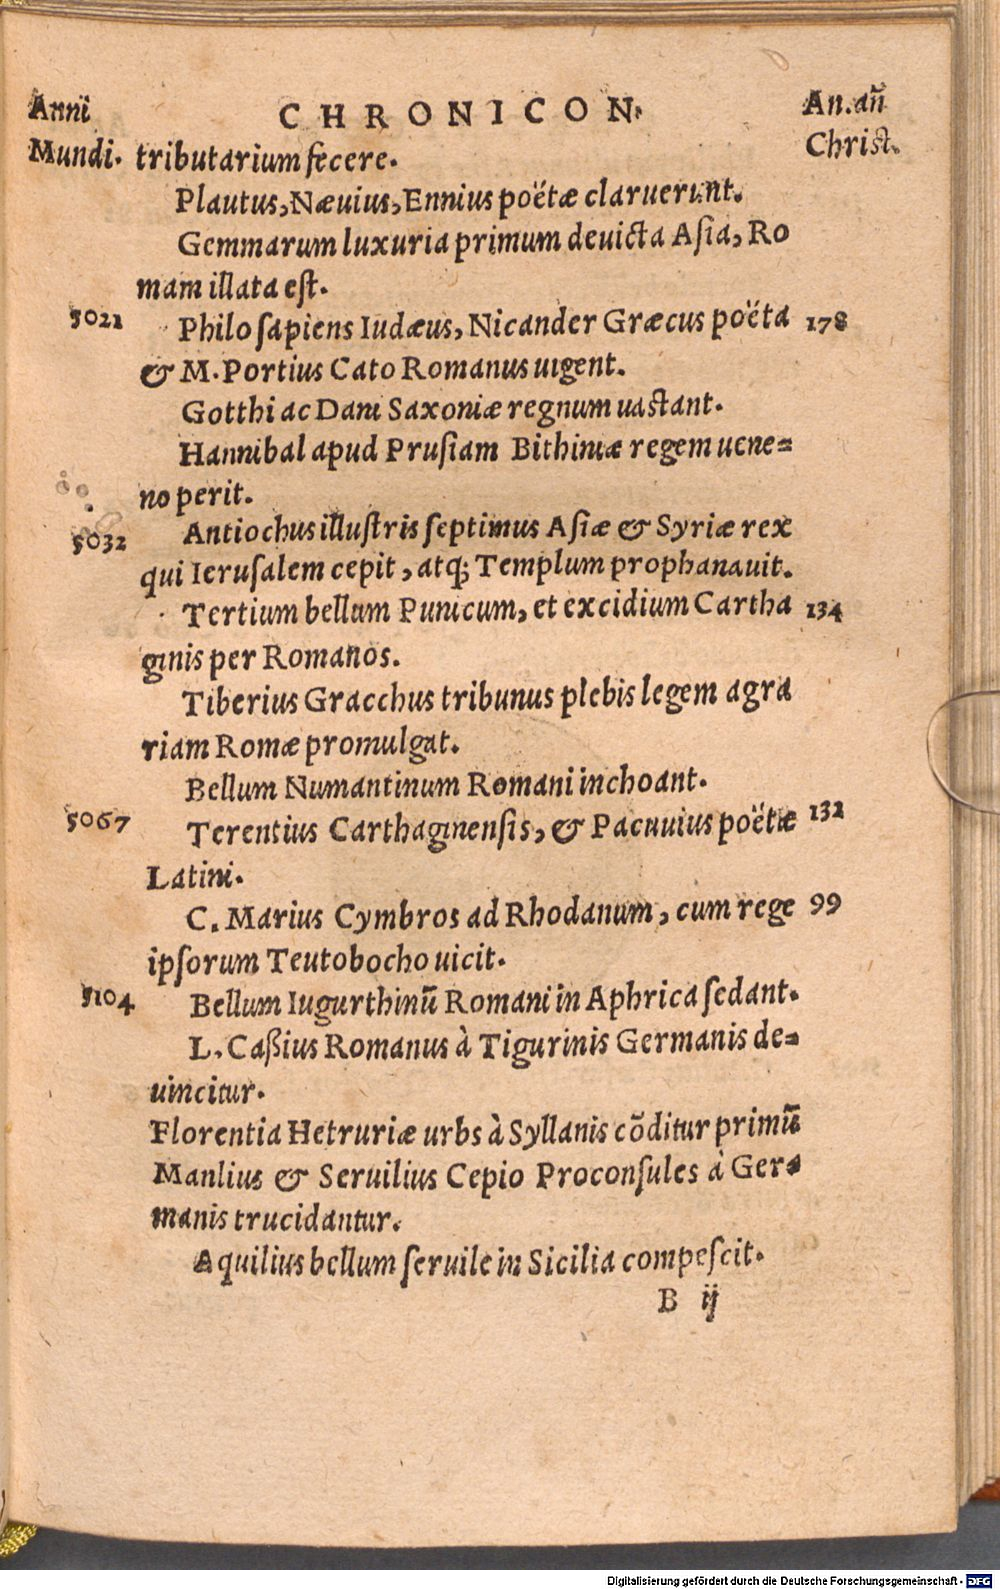 Anni CHRONICON. An.añ
Mundi. tributarium fecere. Christ.
Plautus, Næuius, Ennius poëtæ claruerunt.
Gemmarum luxuria primum deuicta Asia, Ro
mam illata est.
5021 Philo sapiens Iudæus, Nicander Græcus poëta 178
& M. Portius Cato Romanus uigent.
Gotthi ac Dani Saxoniæ regnum uastant.
Hannibal apud Prusiam Bithiniæ regem uene=
no perit.
5032 Antiochus illustris septimus Asiæ & Syriæ rex
qui Ierusalem cepit, atq; Templum prophanauit.
Tertium bellum Punicum, et excidium Cartha 134
ginis per Romanos.
Tiberius Gracchus tribunus plebis legem agra
riam Romæ promulgat.
Bellum Numantinum Romani inchoant.
5067 Terentius Carthaginensis, & Pacuuius poëtæ 132
Latini.
C. Marius Cymbros ad Rhodanum, cum rege 99
ipsorum Teutobocho uicit.
5104 Bellum Iugurthinũ Romani in Aphrica sedant.
L. Caßius Romanus à Tigurinis Germanis de=
uincitur.
Florentia Hetruriæ urbs à Syllanis cõditur primũ
Manlius & Seruilius Cepio Proconsules à Ger=
manis trucidantur.
Aquilius bellum seruile in Sicilia compescit.
B ij
Digitalisierung gefördert durch die Deutsche Forschungsgemeinschaft - DFG